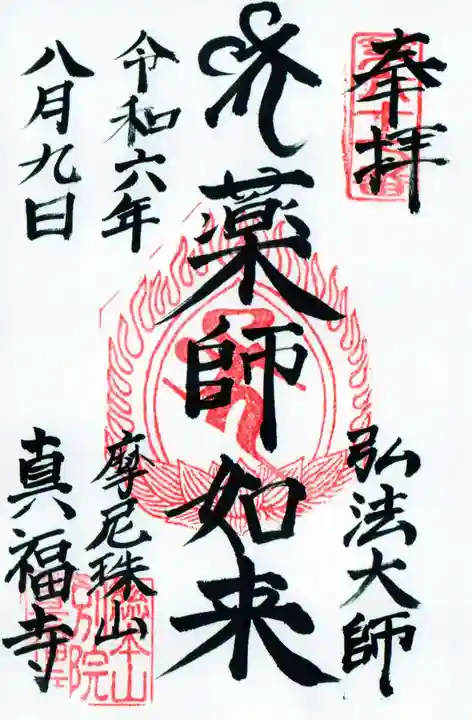 奉拝
弘法大師
薬師如来
令和六年
八月九日
摩尼珠山
真福寺
別院